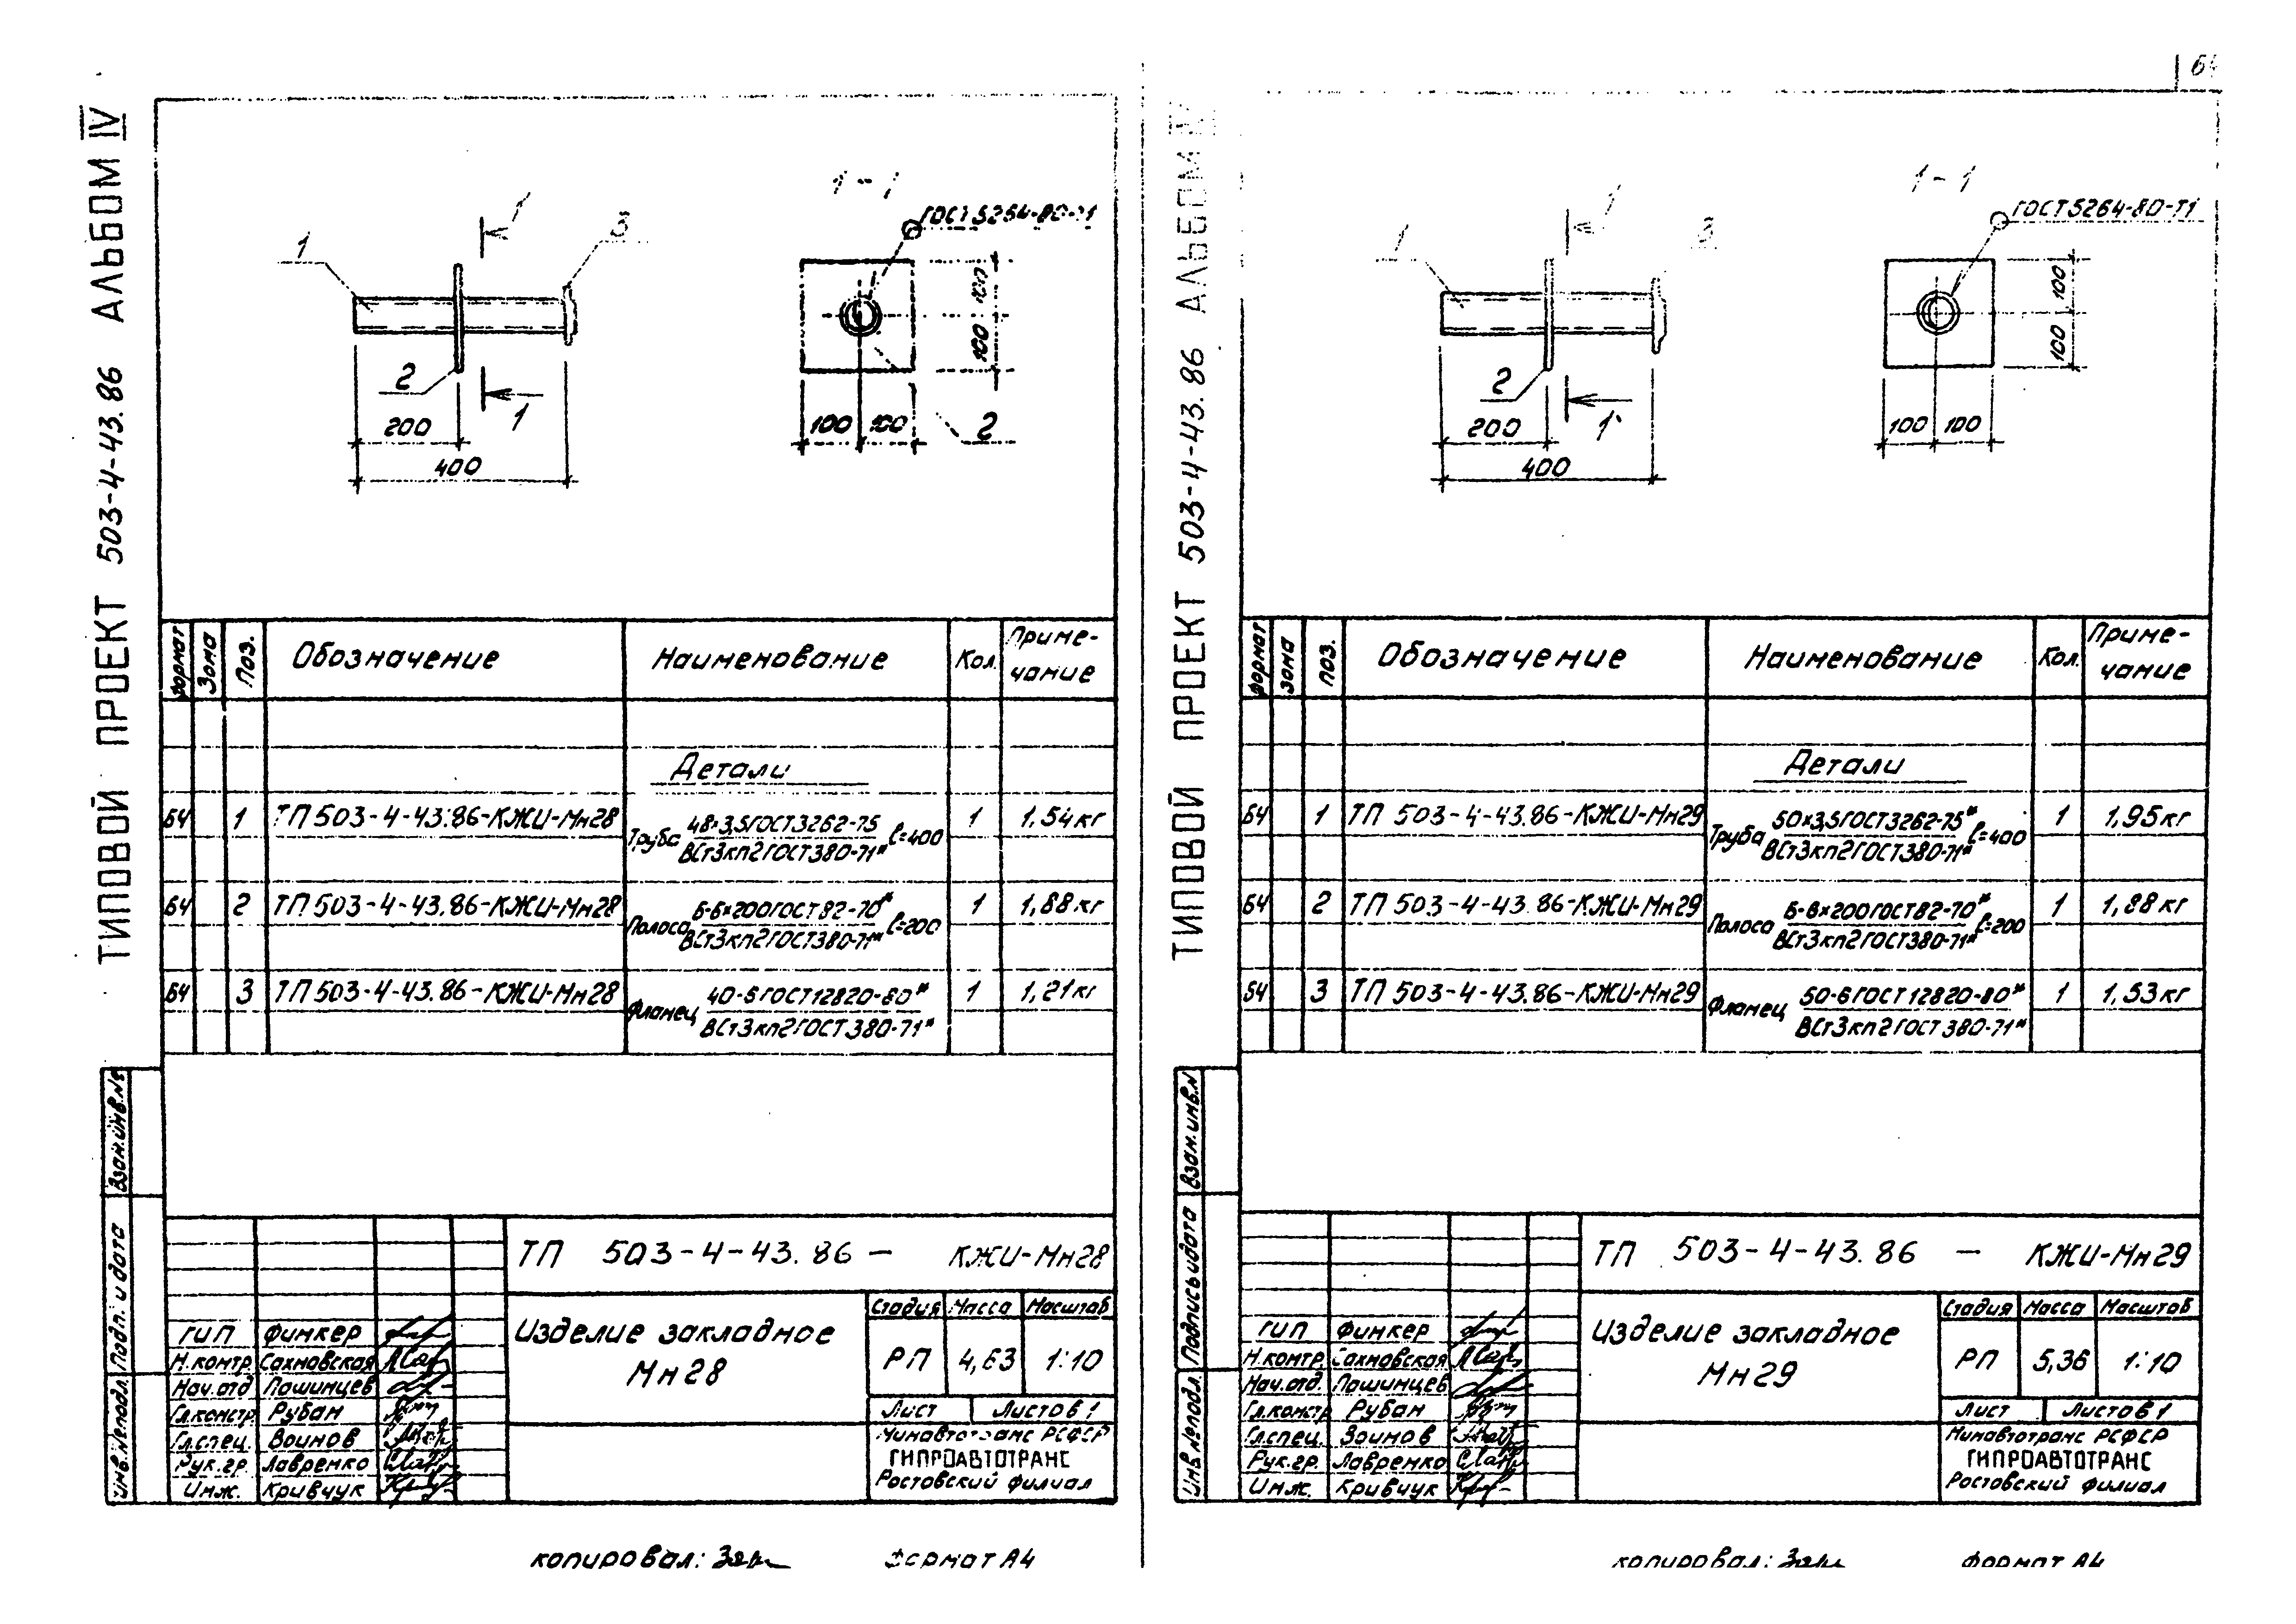 ТИПОВОЙ ПРОЕКТ 503-4-43.86 АЛЬБОМ IV
1-1
ГОСТ 5264-80-Т1
1
1
3
2
1
200
400
100
100
100 100
2
формат Зона Поз. Обозначение Наименование Кол. Приме-
чание
Детали
БЧ 1 ТП 503-4-43.86-КЖИ-Мн28 Труба 48×3,5 ГОСТ 3262-75 ℓ=400 1 1,54кг
ВСт3кп2 ГОСТ 380-71*
БЧ 2 ТП 503-4-43.86-КЖИ-Мн28 Полоса Б-6×200 ГОСТ 82-70* ℓ=200 1 1,88кг
ВСт3кп2 ГОСТ 380-71*
БЧ 3 ТП 503-4-43.86-КЖИ-Мн28 Фланец 40-6 ГОСТ 12820-80* 1 1,21кг
ВСт3кп2 ГОСТ 380-71*
Взам.инв.№
Подп. и дата
Инв.№подл.
ТП 503-4-43.86 — КЖИ-Мн28
Стадия Масса Масштаб
Изделие закладное
Мн28
РП 4,63 1:10
Лист Листов 1
Минавтотранс РСФСР
ГИПРОАВТОТРАНС
Ростовский филиал
ГИП Финкер
Н.контр. Сахновская
Нач.отд Пашинцев
Гл.констр. Рубан
Гл.спец. Воинов
Рук.гр. Лавренко
Инж. Кривчук
копировал:
формат А4
ТИПОВОЙ ПРОЕКТ 503-4-43.86 АЛЬБОМ IV
1-1
ГОСТ 5264-80-Т1
1
1
3
2
1
200
400
100
100
100 100
формат Зона Поз. Обозначение Наименование Кол. Приме-
чание
Детали
БЧ 1 ТП 503-4-43.86-КЖИ-Мн29 Труба 50×3,5 ГОСТ 3262-75* ℓ=400 1 1,95кг
ВСт3кп2 ГОСТ 380-71*
БЧ 2 ТП 503-4-43.86-КЖИ-Мн29 Полоса Б-6×200 ГОСТ 82-70* ℓ=200 1 1,88кг
ВСт3кп2 ГОСТ 380-71*
БЧ 3 ТП 503-4-43.86-КЖИ-Мн29 Фланец 50-6 ГОСТ 12820-80* 1 1,53кг
ВСт3кп2 ГОСТ 380-71*
Взам.инв.№
Подпись и дата
Инв.№подл.
ТП 503-4-43.86 — КЖИ-Мн29
Стадия Масса Масштаб
Изделие закладное
Мн29
РП 5,36 1:10
Лист Листов 1
Минавтотранс РСФСР
ГИПРОАВТОТРАНС
Ростовский филиал
ГИП Финкер
Н.контр. Сахновская
Нач.отд. Пашинцев
Гл.констр Рубан
Гл.спец. Воинов
Рук.гр. Лавренко
Инж. Кривчук
копировал:
формат А4